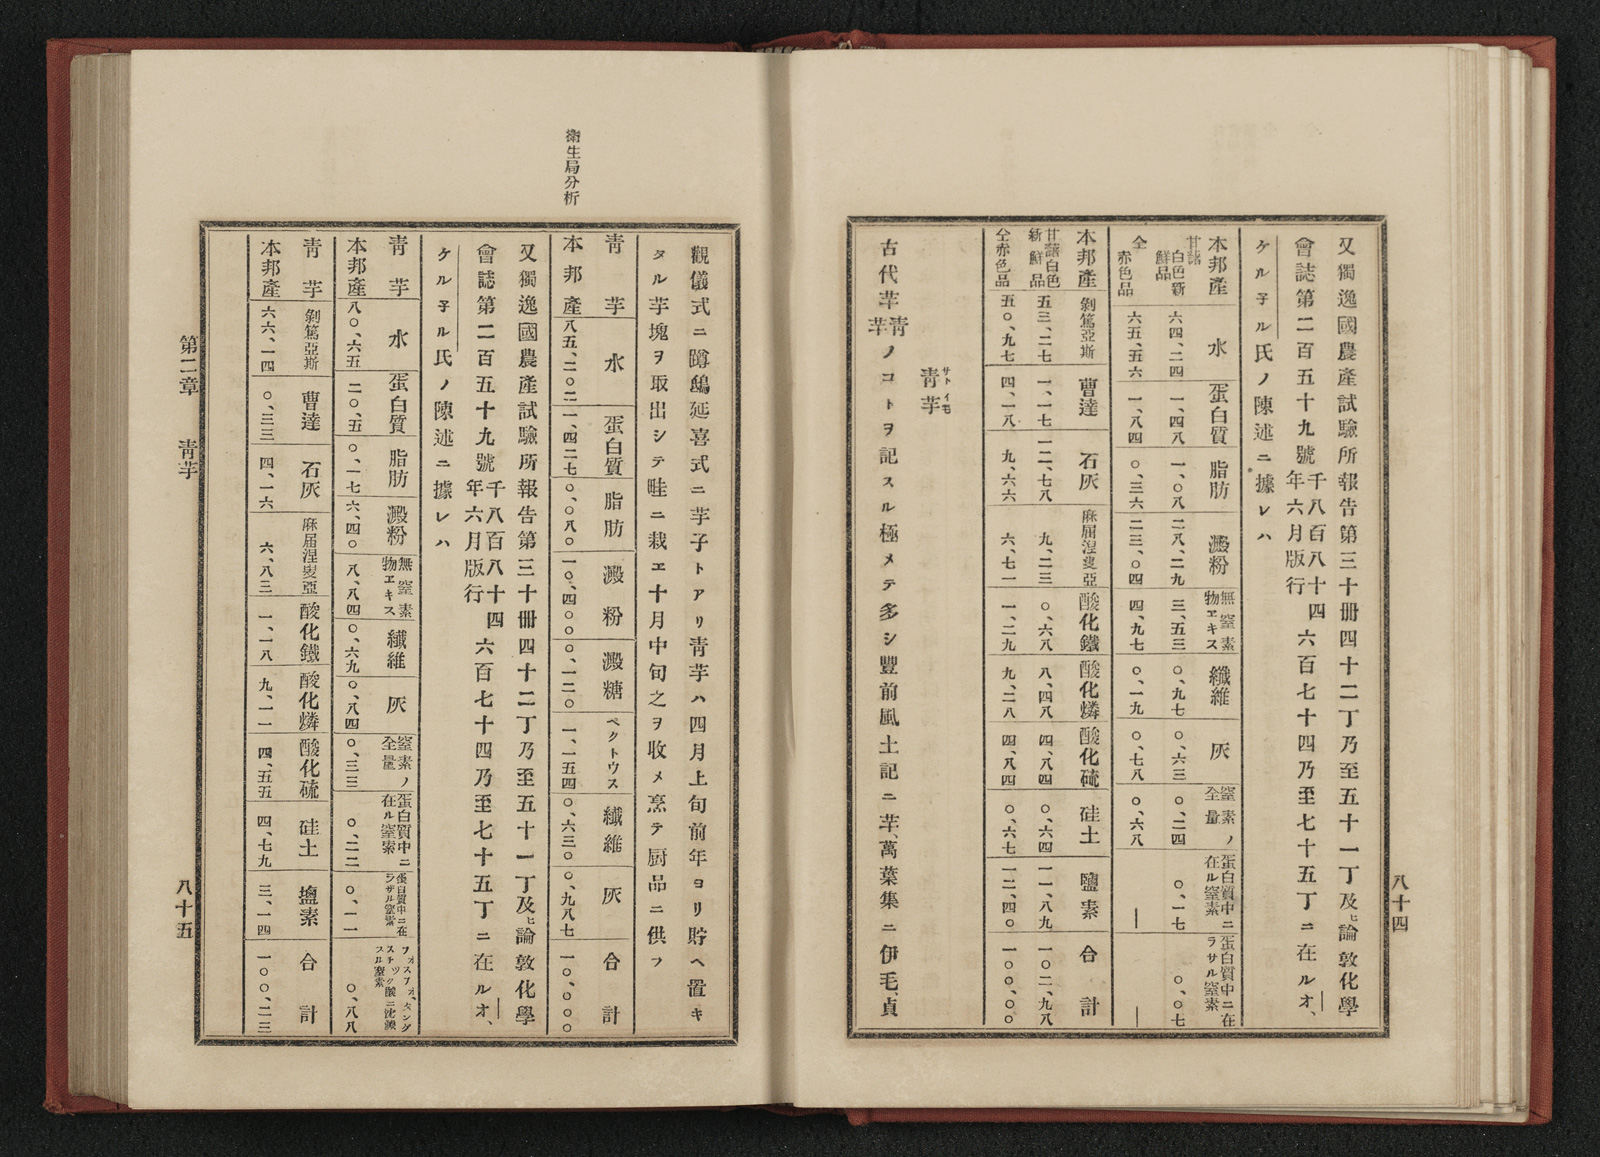 八十四
又獨逸國農產試驗所報告第三十冊四十二丁乃至五十一丁及ヒ論敦化學
會誌第二百五十九號千八百八十四年六月版行六百七十四乃至七十五丁ニ在ルオ、
ケル子ル氏ノ陳述ニ據レハ
本邦產 水 蛋白質 脂肪 澱粉 無窒素物ヱキス 纖維 灰 窒素ノ全量 蛋白質中ニ在ル窒素 蛋白質中ニ在ラサル窒素
甘藷白色新鮮品 六四、二四 一、四八 一、〇八 二八、二九 三、五三 〇、九七 〇、六三 〇、二四 〇、一七 〇、〇七
仝赤色品 六五、五六 一、八四 〇、三六 二三、〇四 四、九七 〇、一九 〇、七八 〇、六八 — —
本邦產 剝篤亞斯 曹達 石灰 麻屈涅叟亞 酸化鐵 酸化燐 酸化硫 硅土 鹽素 合計
甘藷白色新鮮品 五三、二七 一、一七 一二、七八 九、二三 〇、六八 八、四八 四、八四 〇、六四 一一、八九 一〇二、九八
仝赤色品 五〇、九七 四、一八 九、六六 六、七一 一、二九 九、二八 四、八四 〇、六七 一二、四〇 一〇〇、〇〇
青芋 サトイモ
古代芋青芋ノコトヲ記スル極メテ多シ豐前風土記ニ芋、萬葉集ニ伊毛、貞
觀儀式ニ蹲鴟延喜式ニ芋子トアリ青芋ハ四月上旬前年ヨリ貯ヘ置キ
タル芋塊ヲ取出シテ畦ニ栽ヱ十月中旬之ヲ收メ烹テ厨品ニ供フ
衛生局分析
青芋 水 蛋白質 脂肪 澱粉 澱糖 ペクトウス 纖維 灰 合計
本邦產 八五、二〇二 一、四二七 〇、〇八〇 一〇、四〇〇 〇、一二〇 一、一五四 〇、六三〇 〇、九八七 一〇〇、〇〇〇
又獨逸國農產試驗所報告第三十冊四十二丁乃至五十一丁及ヒ論敦化學
會誌第二百五十九號千八百八十四年六月版行六百七十四乃至七十五丁ニ在ルオ、
ケル子ル氏ノ陳述ニ據レハ
青芋 水 蛋白質 脂肪 澱粉 無窒素物ヱキス 纖維 灰 窒素ノ全量 蛋白質中ニ在ル窒素 蛋白質中ニ在ラザル窒素
本邦產 八〇、六五 二〇、五 〇、一七 六、四〇 八、八四 〇、六九 〇、八四 〇、三三 〇、二二 〇、一一 〇、八八
青芋 剝篤亞斯 曹達 石灰 麻屈涅叟亞 酸化鐵 酸化燐 酸化硫 硅土 鹽素 合計
本邦產 六六、一四 〇、三三 四、一六 六、八三 一、一八 九、一一 四、五五 四、七九 三、一四 一〇〇、二三
第二章 青芋
八十五